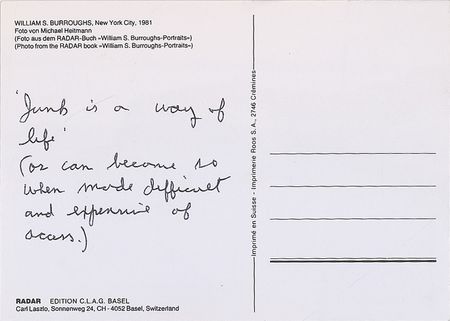 WILLIAM S. BURROUGHS, New York City, 1981
Foto von Michael Heitmann
(Foto aus dem RADAR-Buch »William S. Burroughs-Portraits«)
(Photo from the RADAR book »William S. Burroughs-Portraits«)
'Junk is a way of
life'
(or can become so
when made difficult
and expensive of
access.)
Imprimé en Suisse - Imprimerie Roos S.A., 2746 Crémines
RADAR EDITION C.L.A.G. BASEL
Carl Laszlo, Sonnenweg 24, CH - 4052 Basel, Switzerland